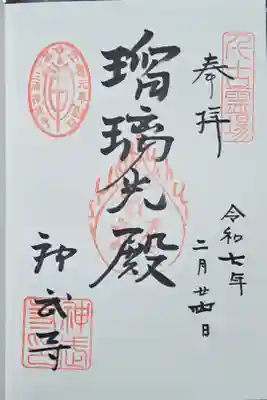 奉拝
令和七年
二月廿四日
瑠璃光殿
神武寺
神武
寺印